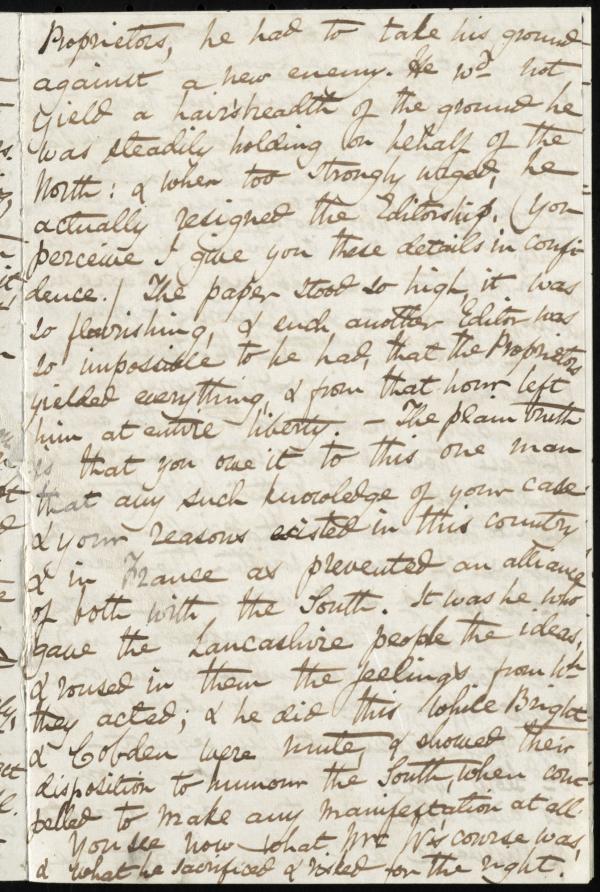 Proprietors, he had to take his ground
against a new enemy. He wd not
yield a hairsbreadth of the ground he
was steadily holding on behalf of the
North: & when too strongly urged, he
actually resigned the Editorship. (You
perceive I give you these details in confi-
dence.) The paper stood so high, it was
so flourishing, & such another Editor was
so impossible to be had, that the Proprietors
yielded everything, & from that hour left
him at entire liberty. – The plain truth
is that you owe it to this one man
that any such knowledge of your case
& your reasons existed in this country
& in France as prevented an alliance
of both with the South. It was he who
gave the Lancashire people the ideas,
& roused in them the feelings from wh
they acted; & he did this while Bright
& Cobden were mute, & showed their
disposition to humour the South, when com-
pelled to make any manifestation at all.
You see now what Mr W's course was,
& what he sacrificed & risked for the right.